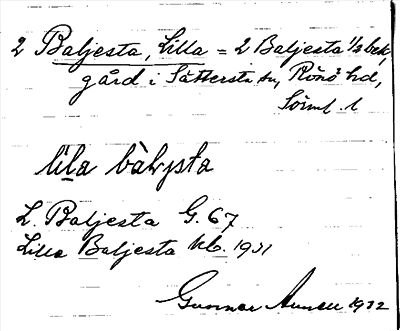 2 Baljesta, Lilla = 2 Baljesta 1/2 bek,
gård i Sättersta sn, Rönö hd,
Sörml. l
lìla bàlysta
L. Baljesta G. 67
Lilla Baljesta kb. 1921
Gunnar 1922